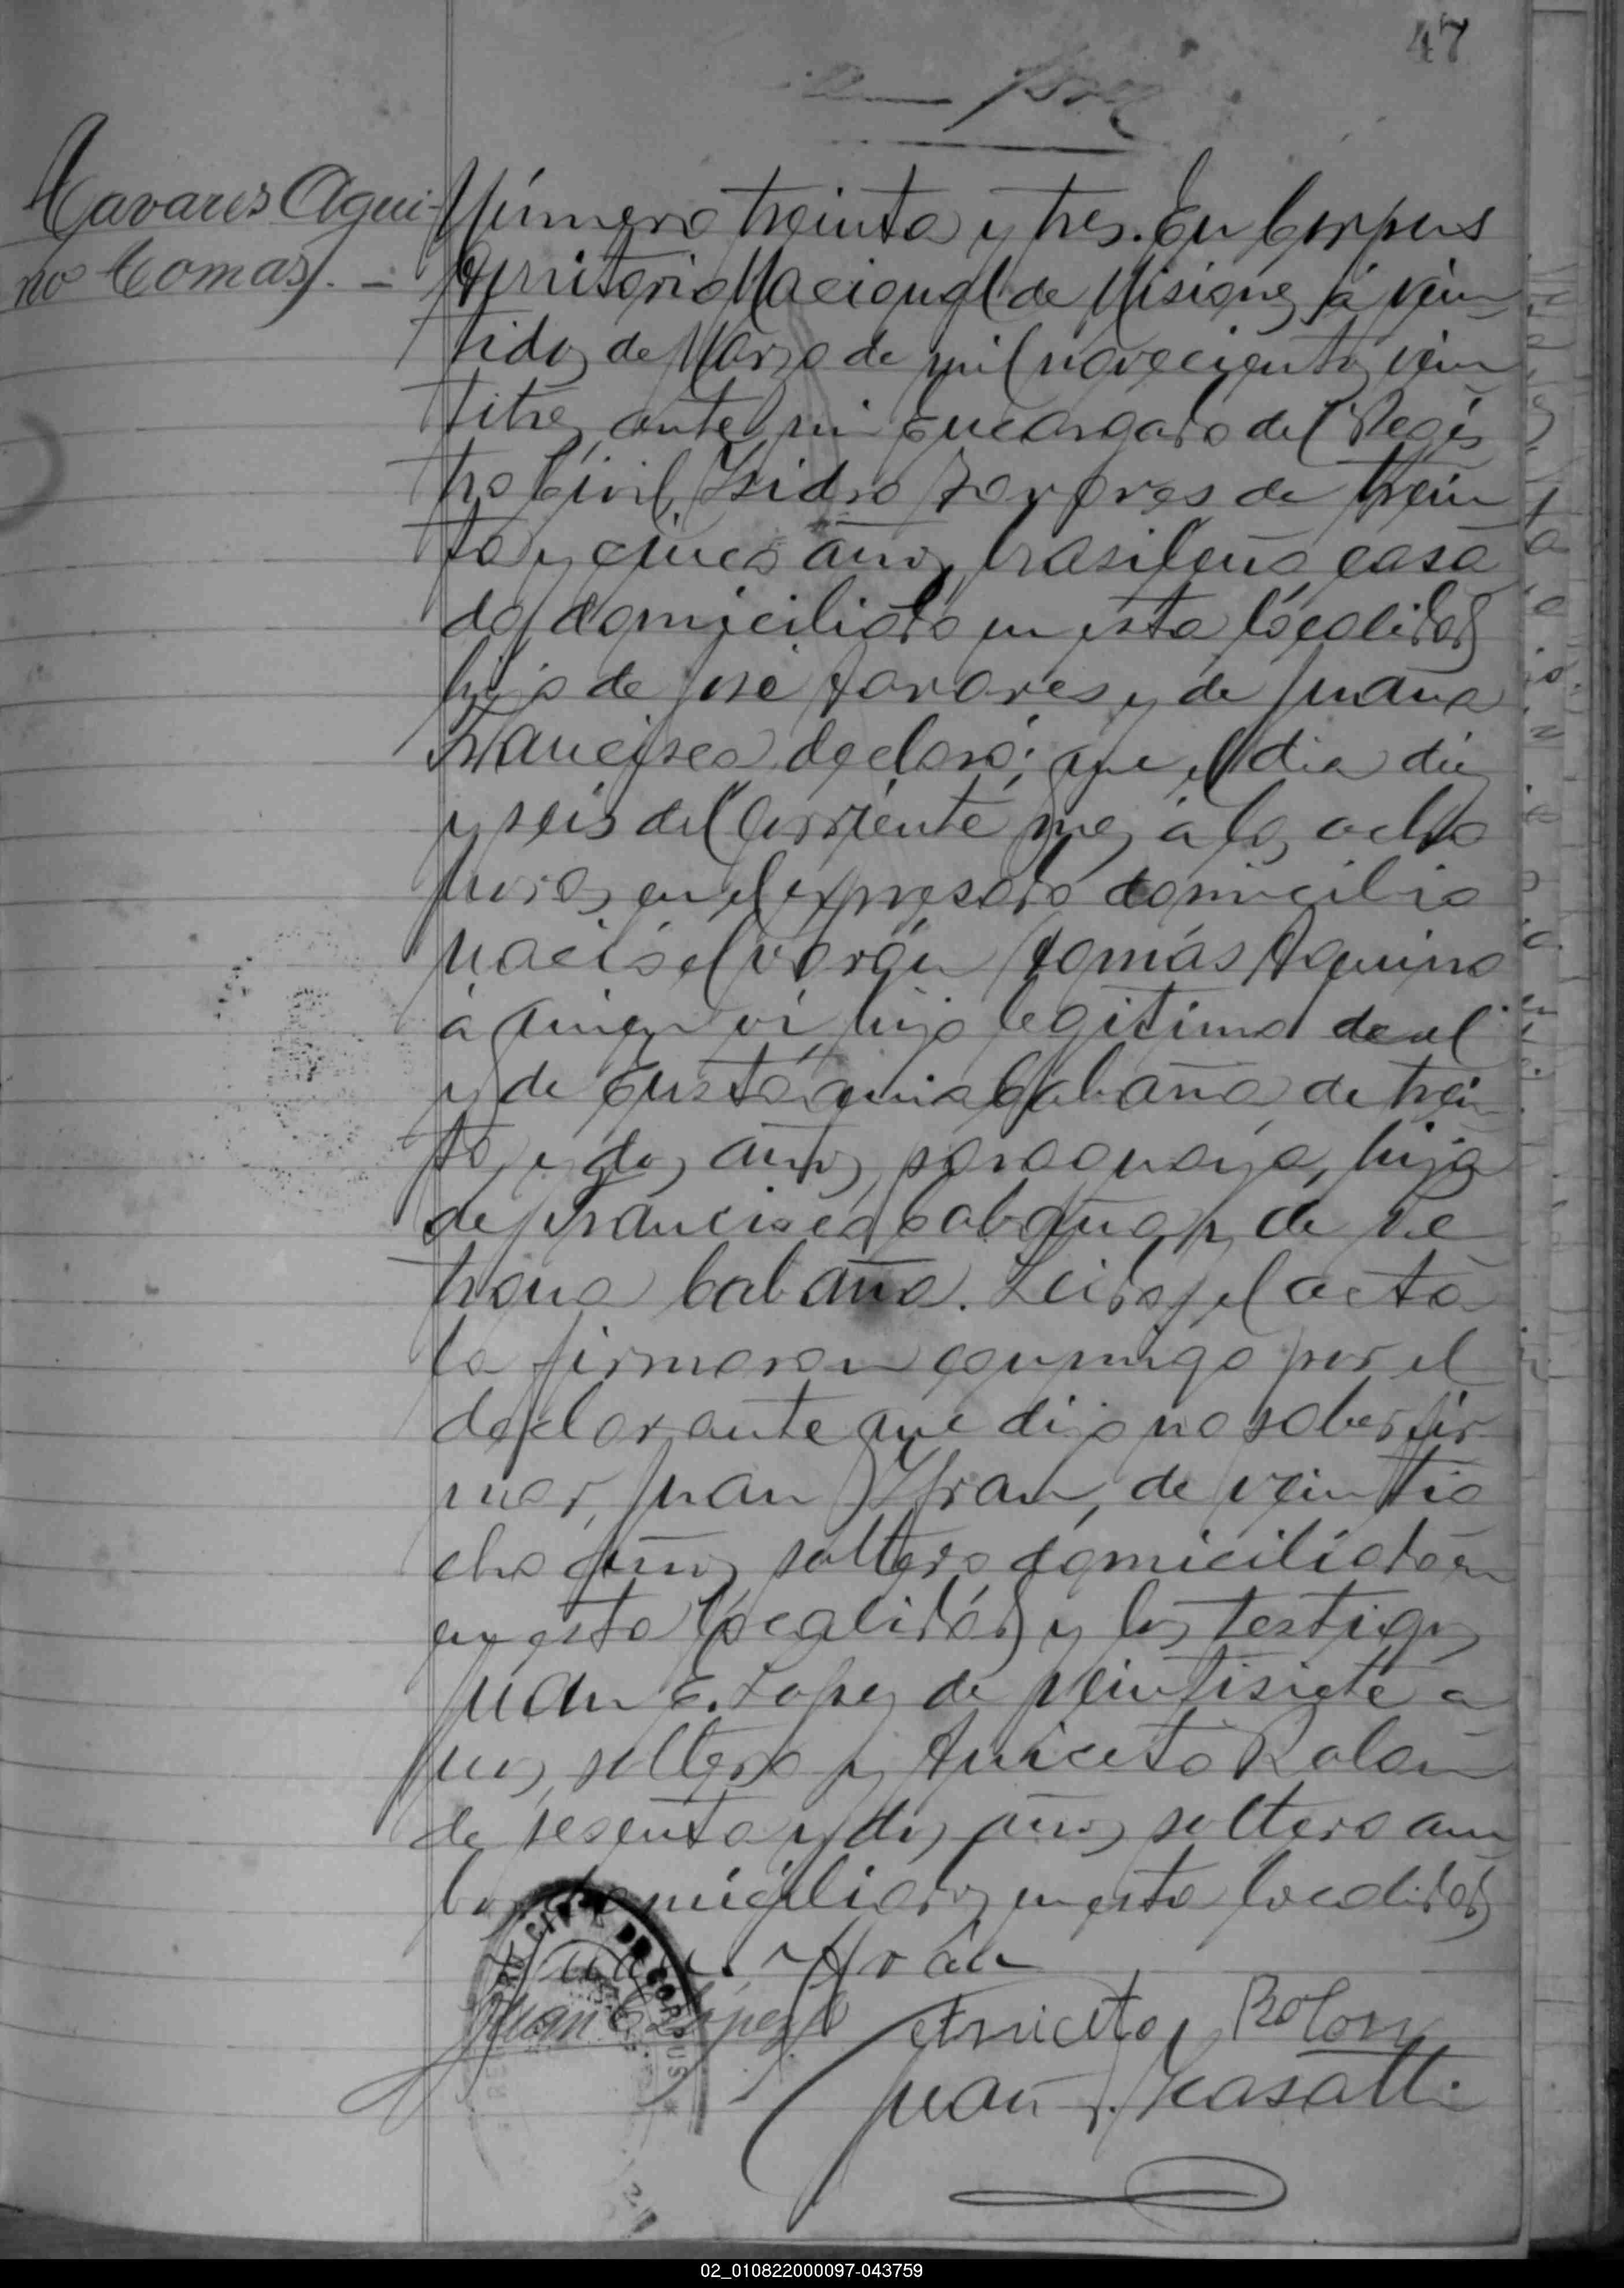 47
Tavares Aqui-
no Tomas. -
Número treinta y tres. En Corpus
Territorio Nacional de Misiones á vein
tidos de Marzo de mil novecientos vein
titres, ante mi Encargado del Regis
tro Civil, Isidro Tavares de trein
ta y cinco años, brasileño, casa
do, domiciliado en esta localidad
hijo de José Tavares y de Juana
Francisca declaró: que el dia diez
y seis del corriente mes á las ocho
horas en el expresado domicilio
nació el varón Tomás Aquino
á quien ví, hijo legitimo de el
y de Eustaquia Cabaña de trein
ta y dos años, paraguaya, hija
de Francisco Cabaña y de Pe
trona Cabaña. Leida el acta
la firmaron conmigo por el
declarante que dijo no saber fir
mar, Juan Ifran, de veintio
cho años, soltero domiciliado en
en esta localidad y los testigos
Juan E. Lopez de veintisiete a
ños, soltero y Aniceto Rolon
de sesenta y dos años, soltero am
bos domiciliados en esta localidad
Juan Ifrán
Juan E López
Aniceto Rolon
Juan Casatti
CIVIL DE CORPUS
02_010822000097-043759